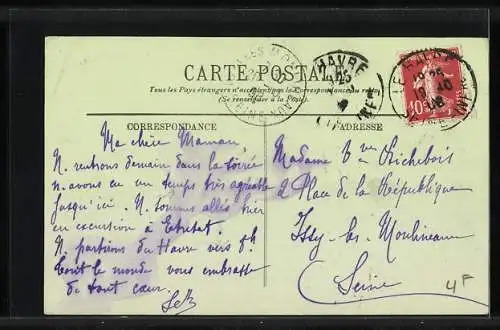 CARTE POSTALE
Tous les Pays étrangers n'acceptent pas la Correspondance au recto
(Se renseigner à la Poste)
CORRESPONDANCE
ADRESSE
HAVRE
LE HAVRE
10
Ma chère Maman,
N. rentrons demain dans la soirée
n. avons eu un temps très agréable
jusqu'ici. N. sommes allés hier
en excursion à Etretat.
N. partirons du Havre vers 5h
Tout le monde vous embrasse
de tout cœur.
Madame Vve Richebois
2 Place de la République
Issy-les-Moulineaux
Seine
4F